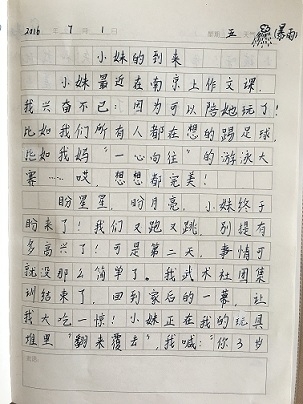 2016年7月1日 星期 五 天气 (暴雨)
小妹的到来
小妹最近在南京上作文课,
我兴奋不已:因为可以陪她玩了!
比如我们所有人都在想的踢足球,
比如我妈"一心向往"的游泳大
赛……哎,想想都完美!
盼星星,盼月亮,小妹终于
盼来了!我们又跑又跳,别提有
多高兴了!可是第二天,事情可
就没那么简单了。我武术社团集
训结束了,回到家后的一幕,让
我大吃一惊!小妹正在我的玩具
堆里"翻来覆去",我喊:"你3岁